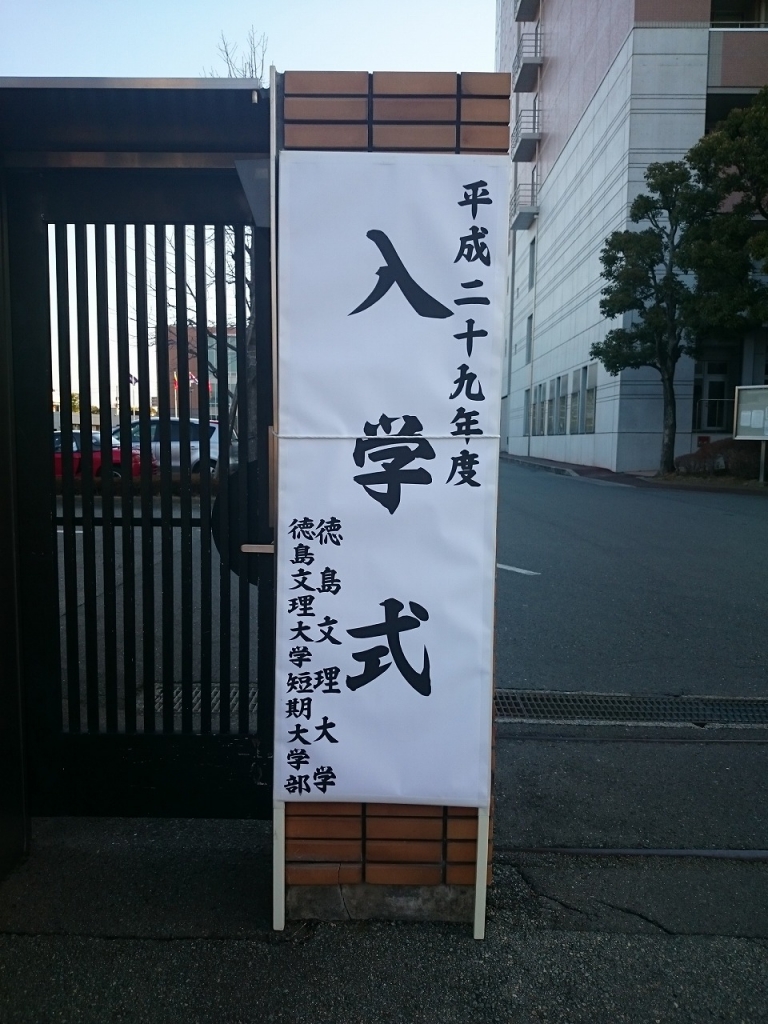 平成二十九年度
入学式
徳島文理大学
徳島文理大学短期大学部